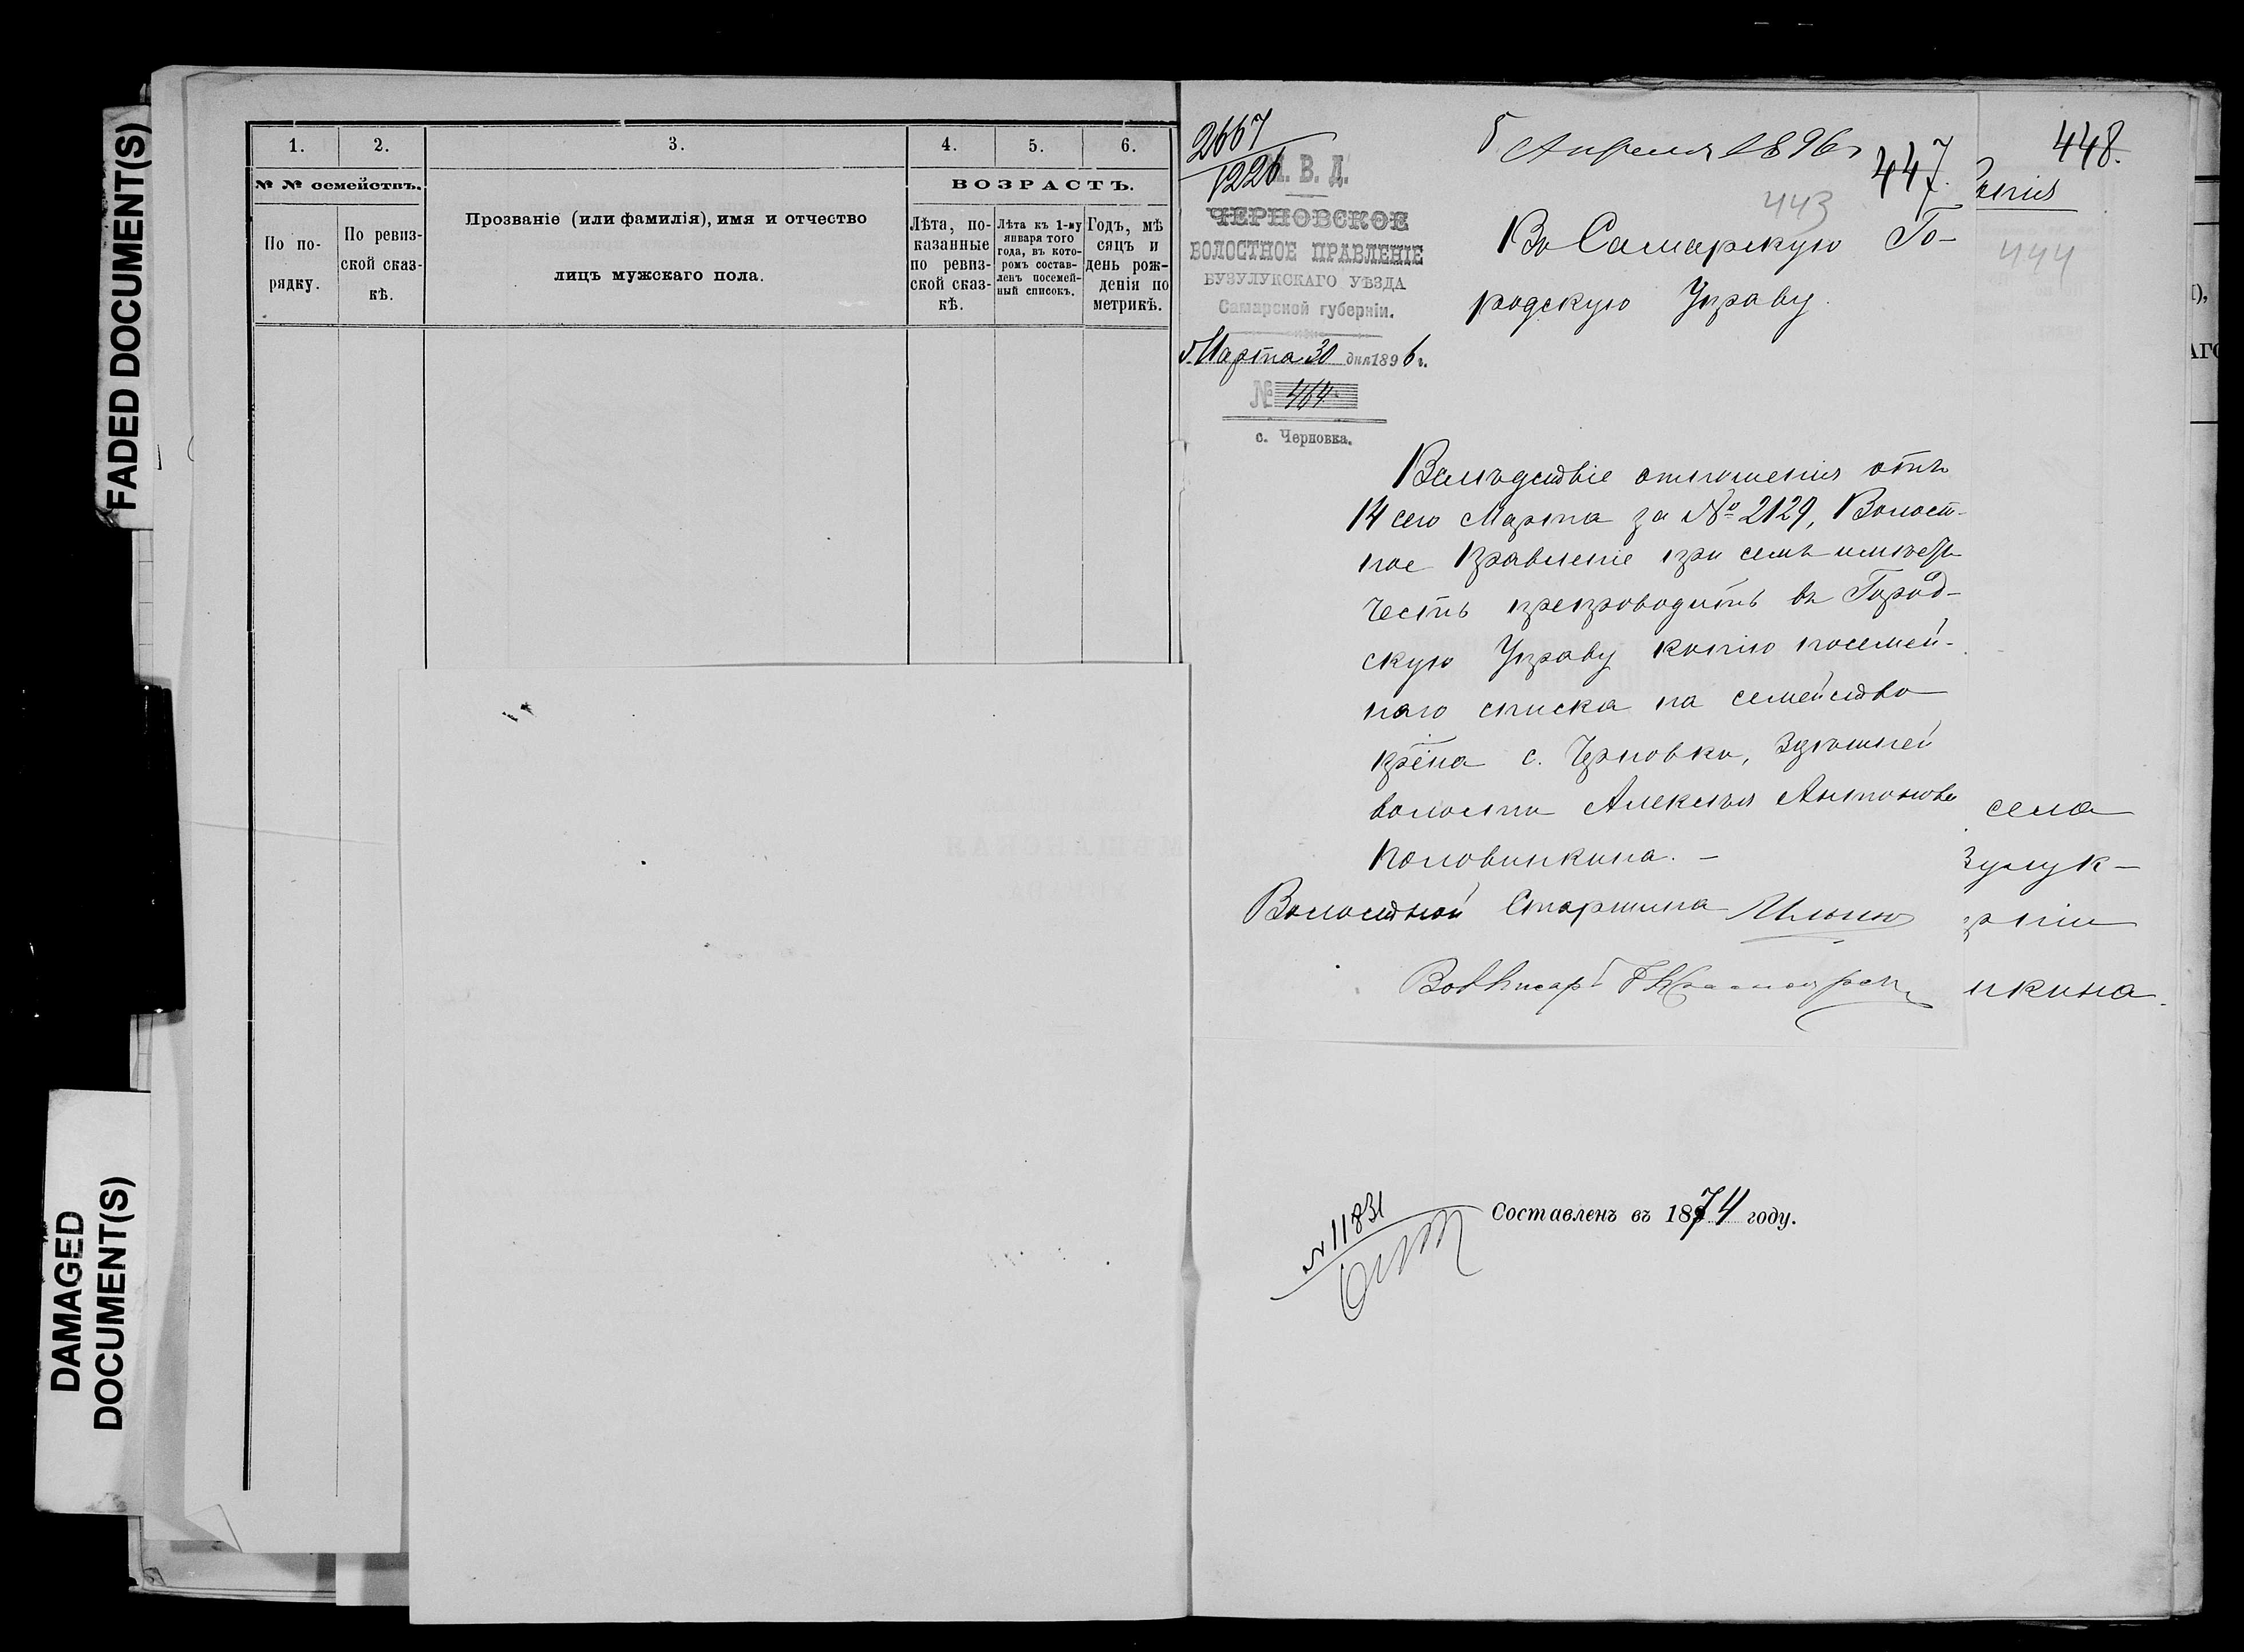 FADED DOCUMENT(S)
DAMAGED
DOCUMENT(S)
1. 2. 3. 4. 5. 6.
№ № семействъ.
ВОЗРАСТЪ.
По по-
рядку.
По ревиз-
ской сказ-
кѣ.
Прозваніе (или фамилія), имя и отчество
лицъ мужскаго пола.
Лѣта, по-
казанные
по ревиз-
ской сказ-
кѣ.
Лѣта къ 1-му
января того
года, въ кото-
ромъ состав-
ленъ посемей-
ный списокъ.
Годъ, мѣ
сяцъ и
день рож-
денія по
метрикѣ.
2667
1226
В. Д.
ЧЕРНОВСКОЕ
ВОЛОСТНОЕ ПРАВЛЕНІЕ
БУЗУЛУКСКАГО УѢЗДА
Самарской губерніи.
Марта 30 дня 1896 г.
№ 464
с. Черновка.
5 Апреля 1896 г
447.
443
Въ Самарскую Го-
родскую Управу.
Вслѣдствіе отношенія отъ
14 сего Марта за № 2129, Волост-
ное Правленіе при семъ имѣетъ
честь препроводить въ Город-
скую Управу копію посемей-
наго списка на семейство
кр-на с. Черновки, здѣшней
волости Алексѣя Антонова
Половинкина. –
Волостной Старшина Ильинъ
Вол Писарь
448.
копія
444
села
зулук-
рніи
нкина.
Составленъ въ 1874 году.
N 11831